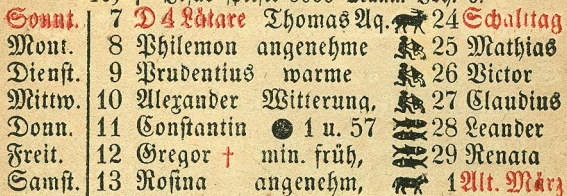 Sonnt. 7 D 4 Lätare Thomas Aq. 24 Schalttag
Mont. 8 Philemon angenehme 25 Mathias
Dienst. 9 Prudentius warme 26 Victor
Mittw. 10 Alexander Witterung, 27 Claudius
Donn. 11 Constantin ● 1 u. 57 28 Leander
Freit. 12 Gregor † min. früh, 29 Renata
Samst. 13 Rosina angenehm, 1 Alt. März